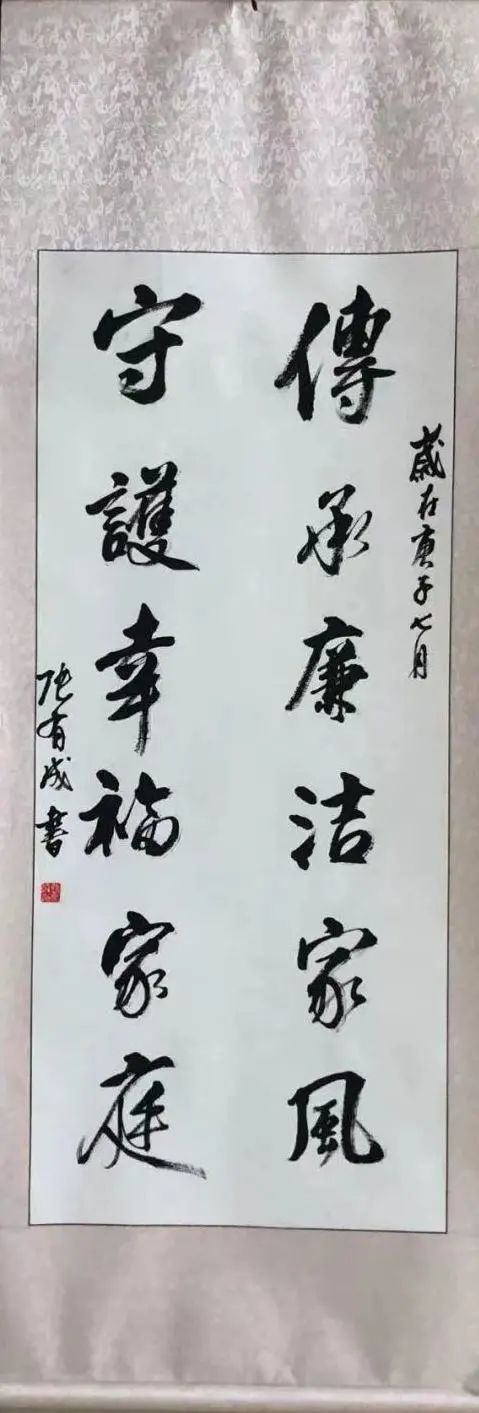 歲在庚子七月
傳承廉洁家風
守護幸福家庭
张有成書